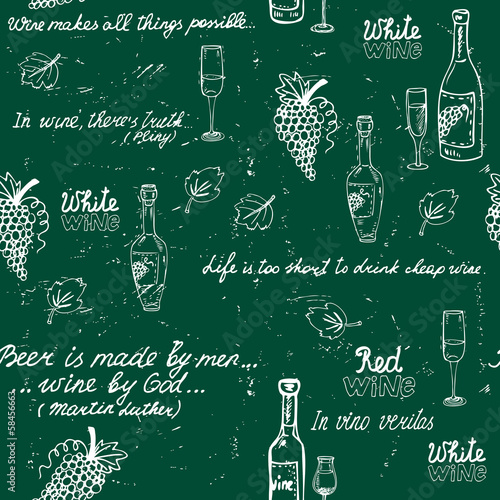 Wine makes all things possible...
White
WiNE
In wine, there's truth...
(Pliny)
White
WiNE
Life is too short to drink cheap wine.
Beer is made by men...
...wine by God...
(Martin Luther)
Red
WiNE
In vino veritas
White
WiNE
wine
Adobe Stock
#58456663